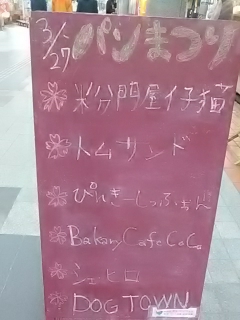 3/27 パンまつり
粉問屋仔猫
トムサンド
ぴぃきーしっふぉん
Bakery Cafe CoCo
シェヒロ
DOG TOWN